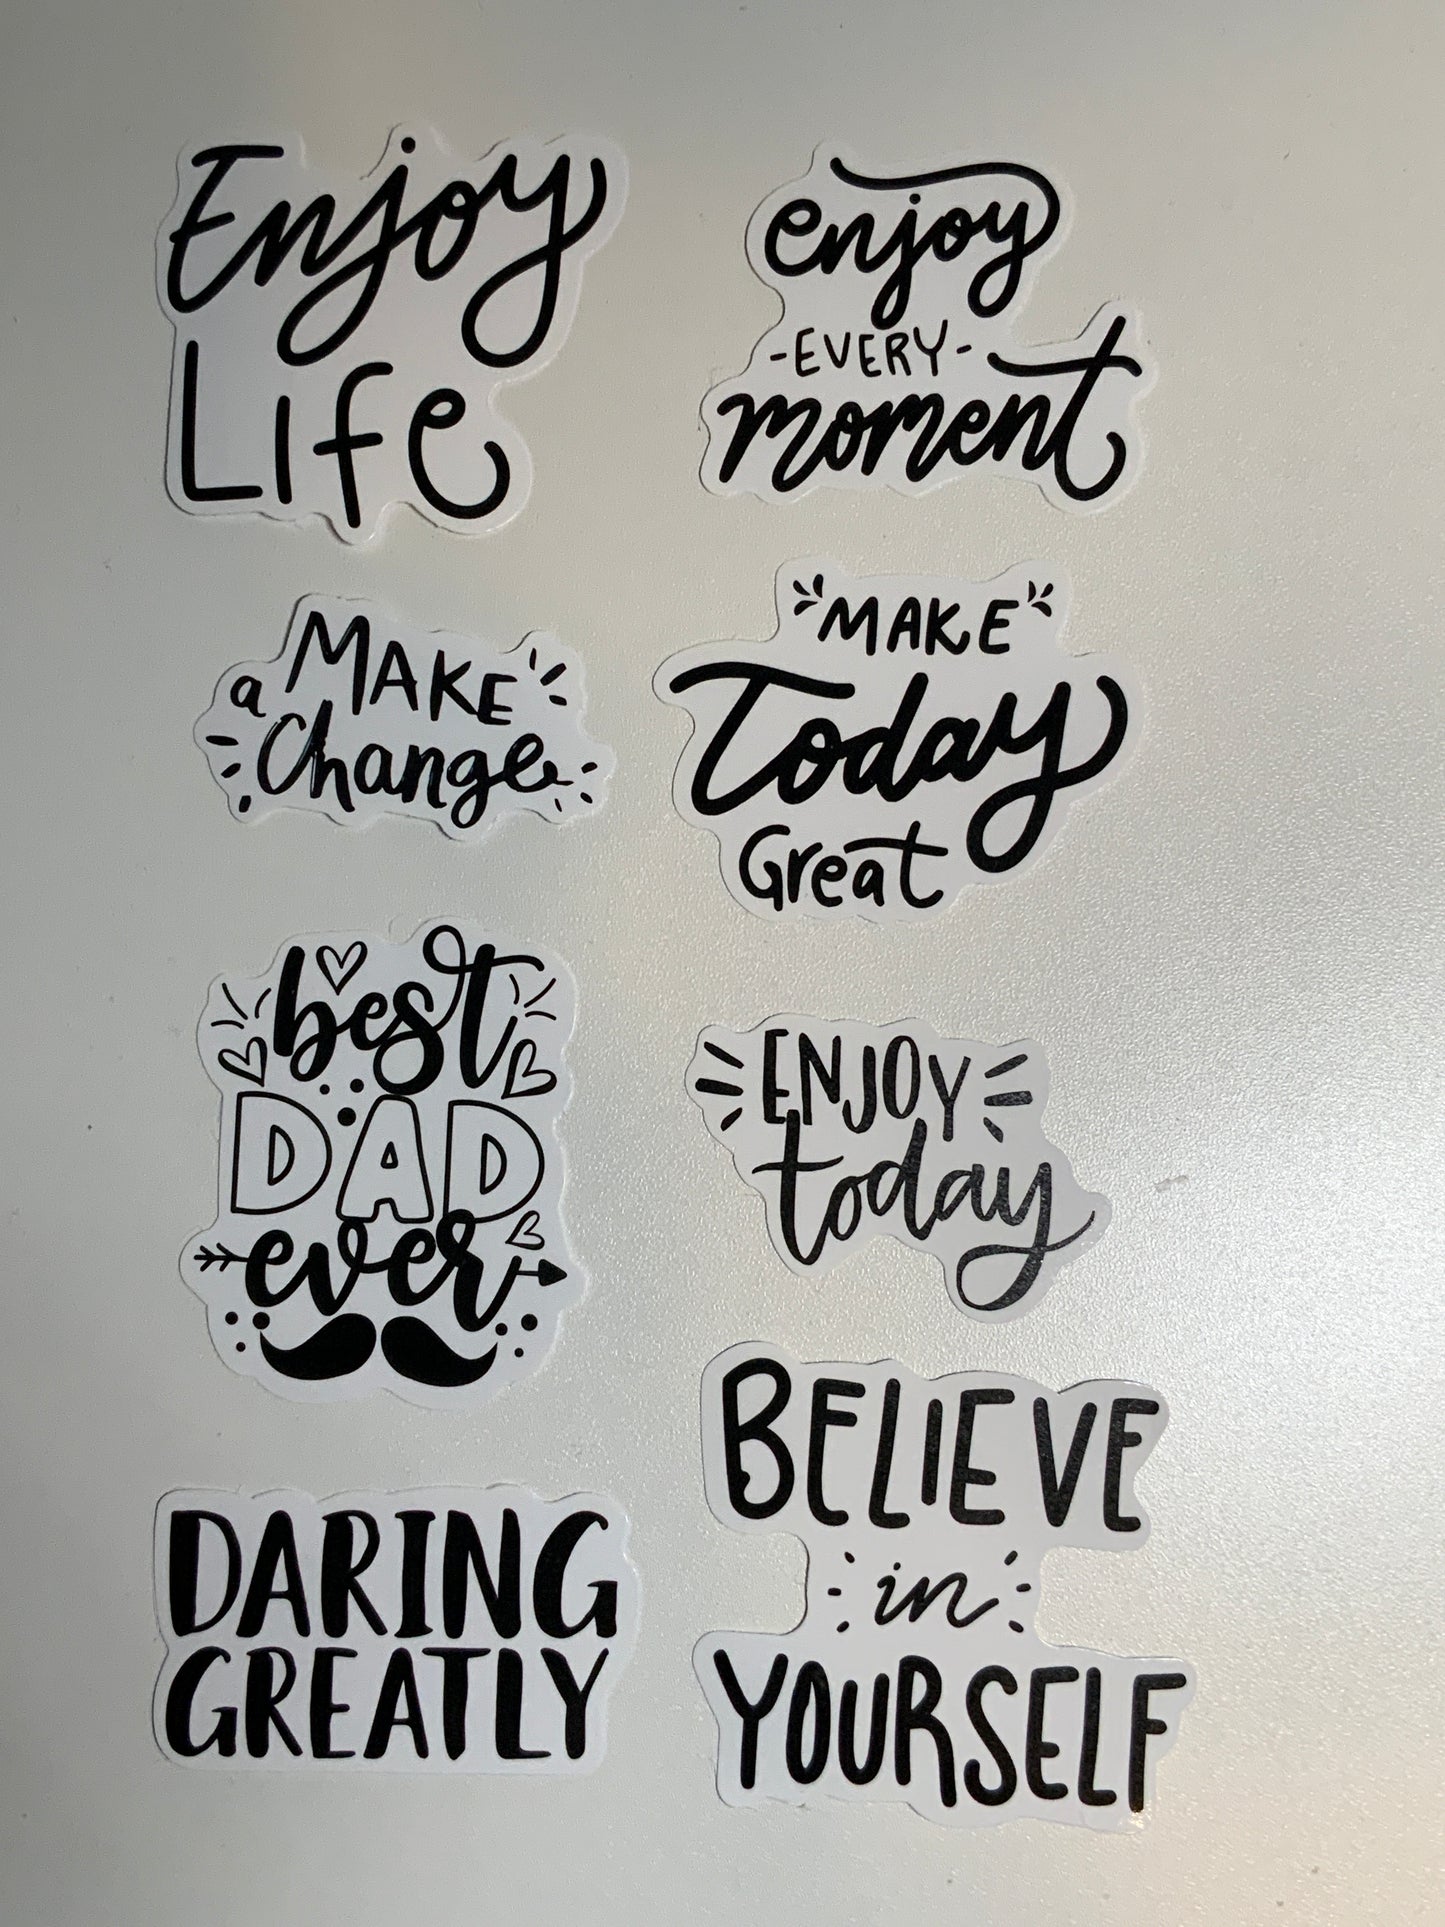 Enjoy
Life
enjoy
-EVERY-
moment
MAKE
a
Change
"MAKE"
Today
Great
best
DAD
ever
ENJOY
today
DARING
GREATLY
BELIEVE
in
YOURSELF